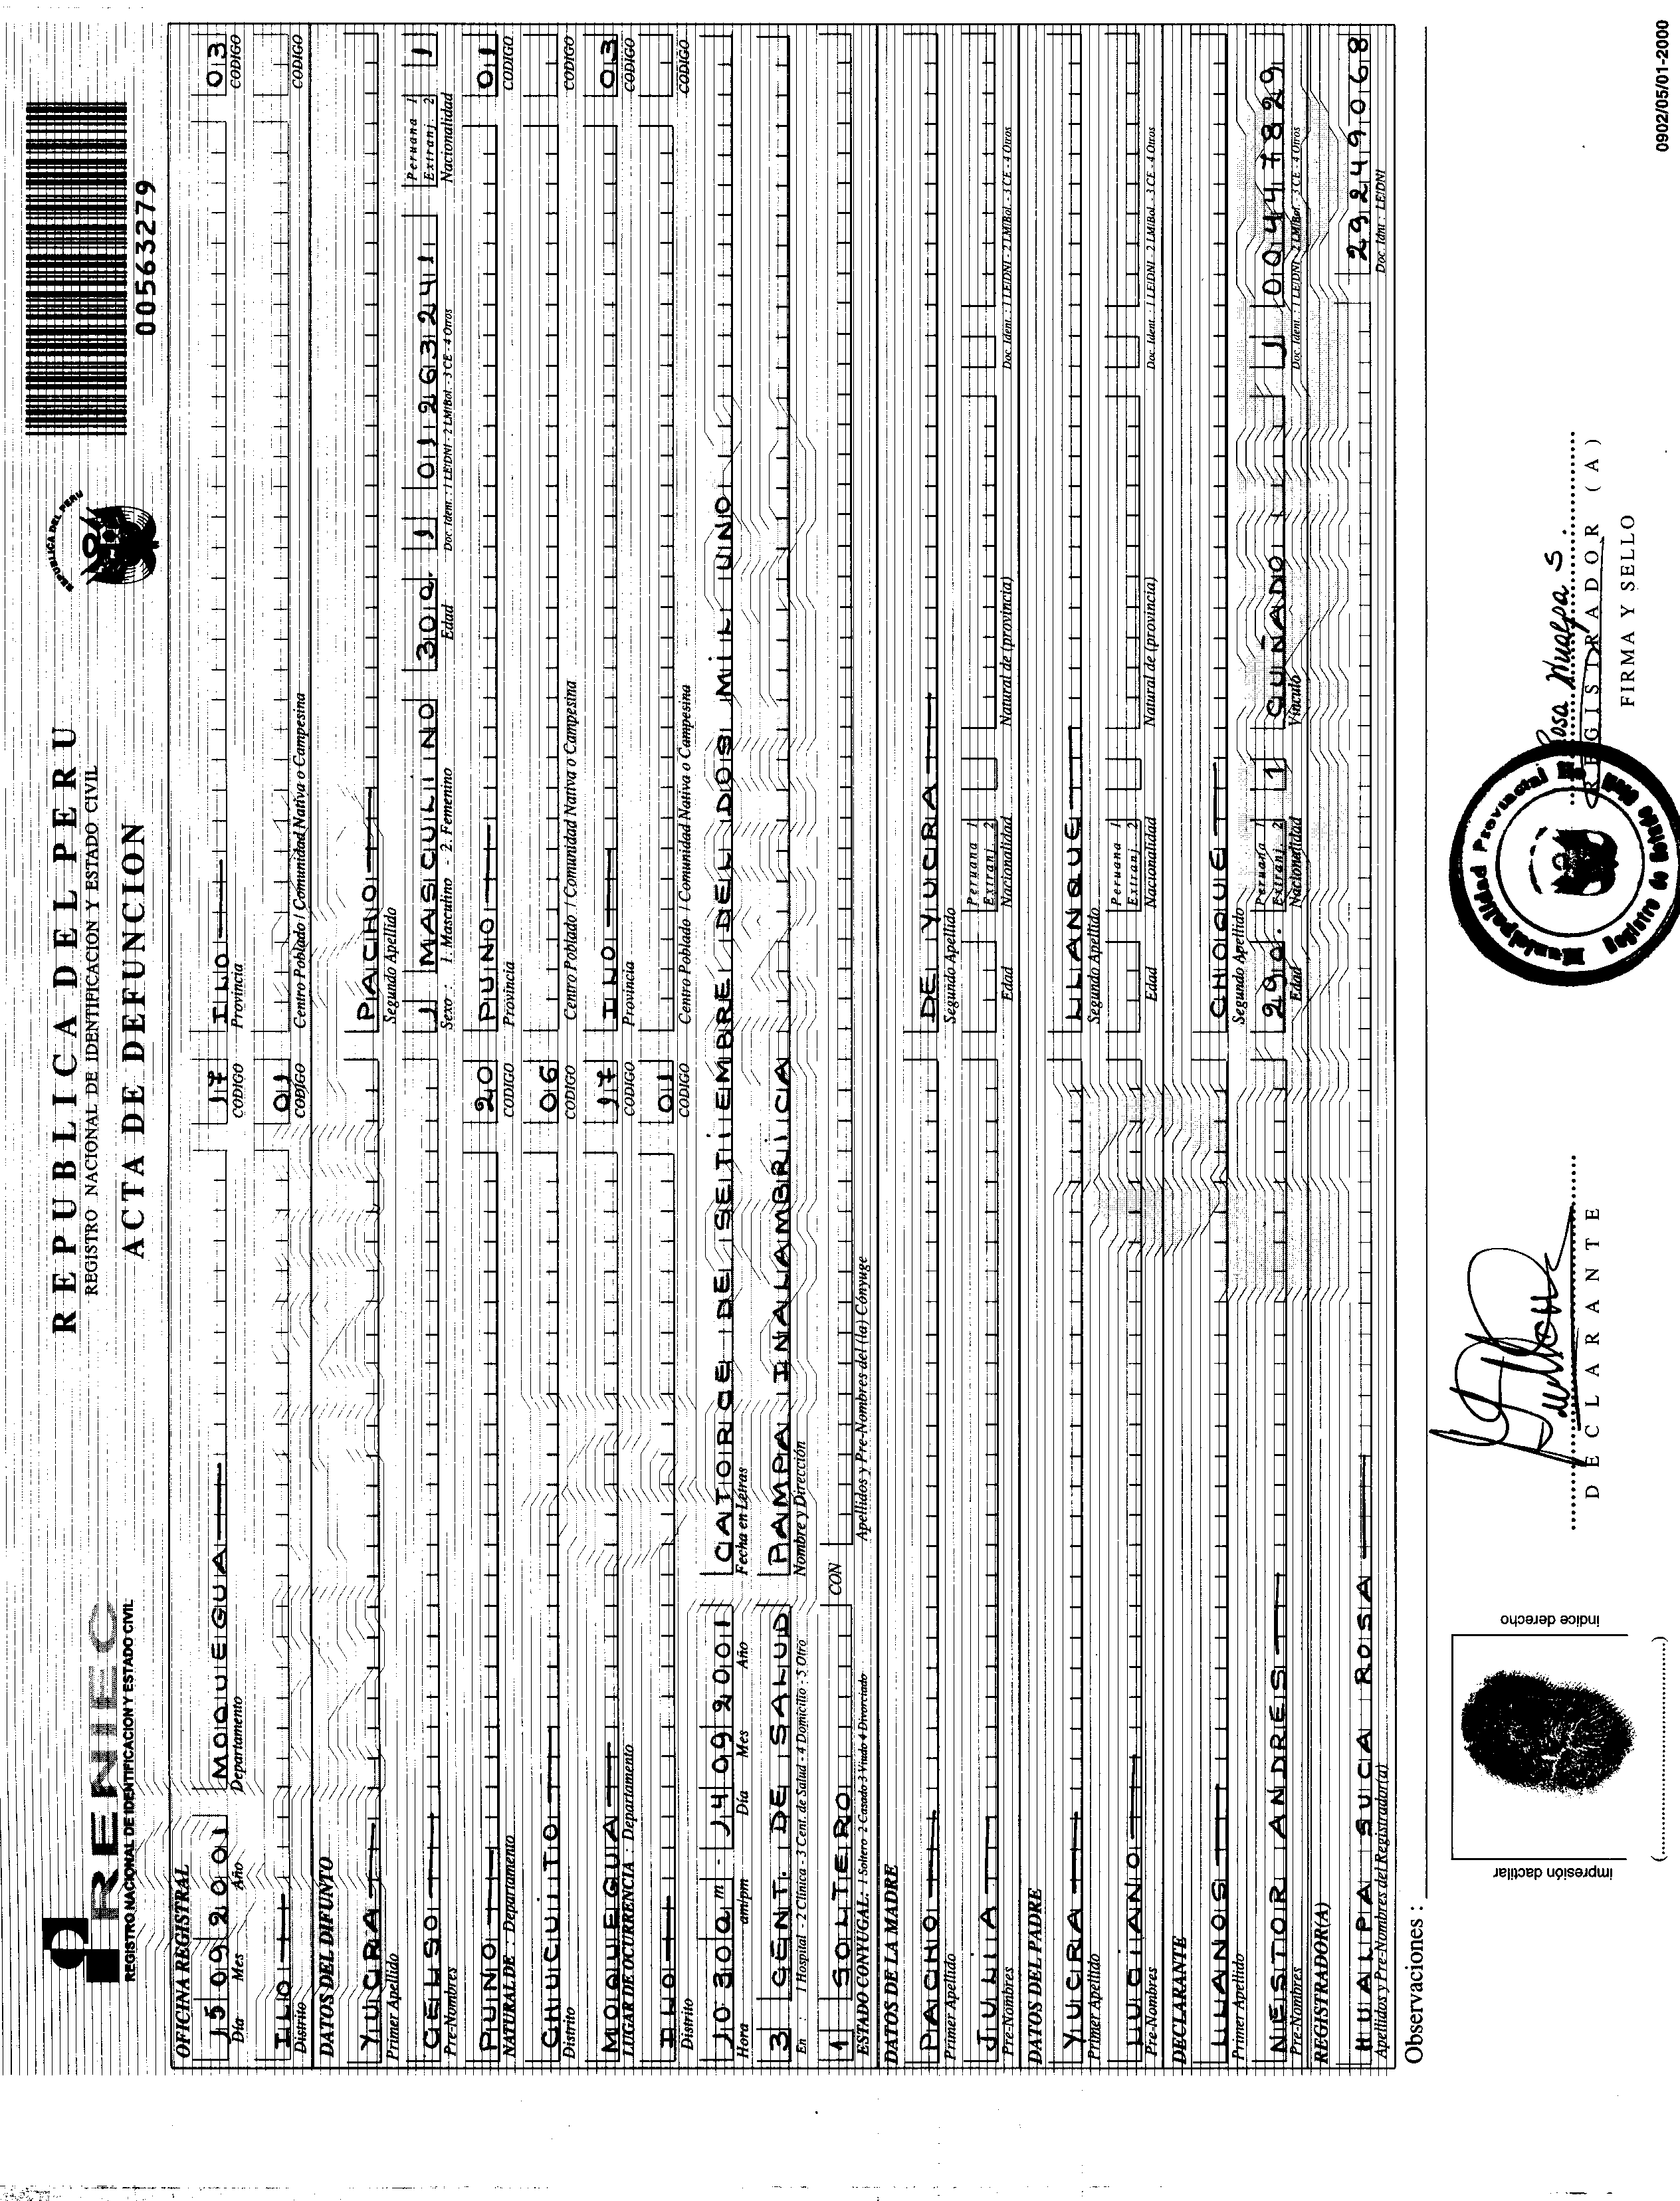 RENIEC
REGISTRO NACIONAL DE IDENTIFICACION Y ESTADO CIVIL
REPUBLICA DEL PERU
REGISTRO NACIONAL DE IDENTIFICACION Y ESTADO CIVIL
ACTA DE DEFUNCION
REPUBLICA DEL PERU
00563279
OFICINA REGISTRAL
15 09 2001 MOQUEGUA 17 ILO 03
Día Mes Año Departamento CODIGO Provincia CODIGO
ILO 01
Distrito CODIGO Centro Poblado / Comunidad Nativa o Campesina CODIGO
DATOS DEL DIFUNTO
YUCRA PACHO
Primer Apellido Segundo Apellido
CELSO 1 MASCULINO 30a. 1 01263241 Peruana 1 Extranj. 2 1
Pre-Nombres Sexo : 1. Masculino - 2. Femenino Edad Doc. Ident. : 1 LE/DNI - 2 LM/Bol. - 3 CE - 4 Otros Nacionalidad
PUNO 20 PUNO 01
NATURAL DE : Departamento CODIGO Provincia CODIGO
CHUCUITO 06
Distrito CODIGO Centro Poblado / Comunidad Nativa o Campesina CODIGO
MOQUEGUA 17 ILO 03
LUGAR DE OCURRENCIA : Departamento CODIGO Provincia CODIGO
ILO 01
Distrito CODIGO Centro Poblado / Comunidad Nativa o Campesina CODIGO
10 30 am - 14 09 2001 CATORCE DE SETIEMBRE DEL DOS MIL UNO
Hora am/pm Día Mes Año Fecha en Letras
3 CENT. DE SALUD PAMPA INALAMBRICA
En : 1 Hospital - 2 Clínica - 3 Cent. de Salud - 4 Domicilio - 5 Otro Nombre y Dirección
1 SOLTERO CON
ESTADO CONYUGAL: 1 Soltero 2 Casado 3 Viudo 4 Divorciado Apellidos y Pre-Nombres del (la) Cónyuge
DATOS DE LA MADRE
PACHO DE YUCRA
Primer Apellido Segundo Apellido
JULIA Peruana 1 Extranj. 2
Pre-Nombres Edad Nacionalidad Natural de (provincia) Doc. Ident. : 1 LE/DNI - 2 LM/Bol. - 3 CE - 4 Otros
DATOS DEL PADRE
YUCRA LLANQUE
Primer Apellido Segundo Apellido
LUCIANO Peruana 1 Extranj. 2
Pre-Nombres Edad Nacionalidad Natural de (provincia) Doc. Ident. : 1 LE/DNI - 2 LM/Bol. - 3 CE - 4 Otros
DECLARANTE
LLANOS CHOQUE
Primer Apellido Segundo Apellido
NESTOR ANDRES 29a. Peruana 1 Extranj. 2 1 CUÑADO 1 00447829
Pre-Nombres Edad Nacionalidad Vínculo Doc. Ident. : 1 LE/DNI - 2 LM/Bol. - 3 CE - 4 Otros
REGISTRADOR(A)
HUALPA SUCA ROSA 29249068
Apellidos y Pre-Nombres del Registrador(a) Doc. Idnt : LE/DNI
Observaciones :
impresión dactilar
indice derecho
(........................)
DECLARANTE
Municipalidad Provincial Ilo
Registro de Estado Civil
Rosa Hualpa S.
REGISTRADOR (A)
FIRMA Y SELLO
0902/05/01-2000